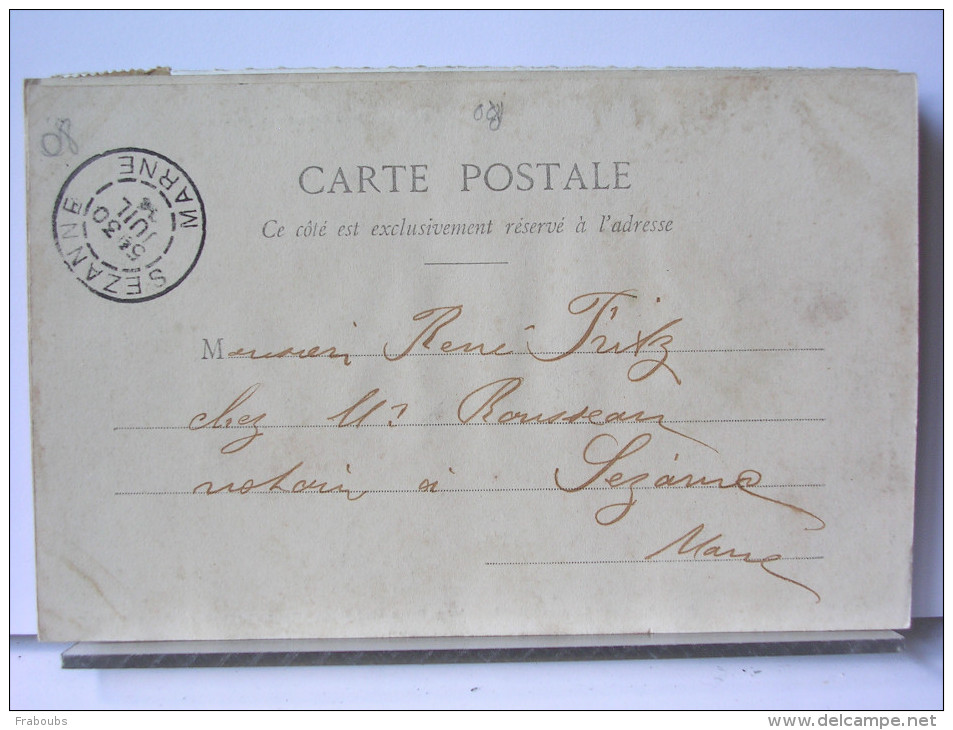 08
08
CARTE POSTALE
Ce côté est exclusivement réservé à l'adresse
SEZANNE
5E 30
JUIL
MARNE
Monsieur René Fritz
chez Mr Rousseau
notaire à Sézanne
Marne
Fraboubs
www.delcampe.net